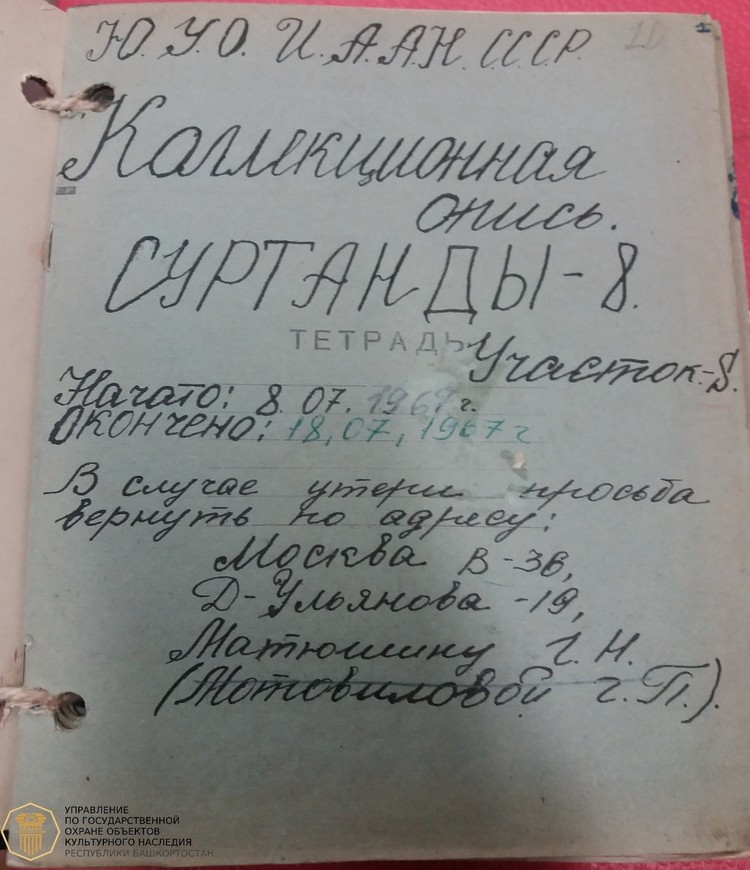 Ю.У.О. И.А.АН. С.С.С.Р.
Коллекционная
опись.
СУРТАНДЫ-8.
ТЕТРАДЬ
Участок-8.
Начато: 8.07.1967 г.
Окончено: 18,07,1967 г
В случае утери просьба
вернуть по адресу:
Москва В-36,
Д-Ульянова-19,
Матюшину Г.Н.
(Мотовиловой Г.П.).
УПРАВЛЕНИЕ
ПО ГОСУДАРСТВЕННОЙ
ОХРАНЕ ОБЪЕКТОВ
КУЛЬТУРНОГО НАСЛЕДИЯ
РЕСПУБЛИКИ БАШКОРТОСТАН